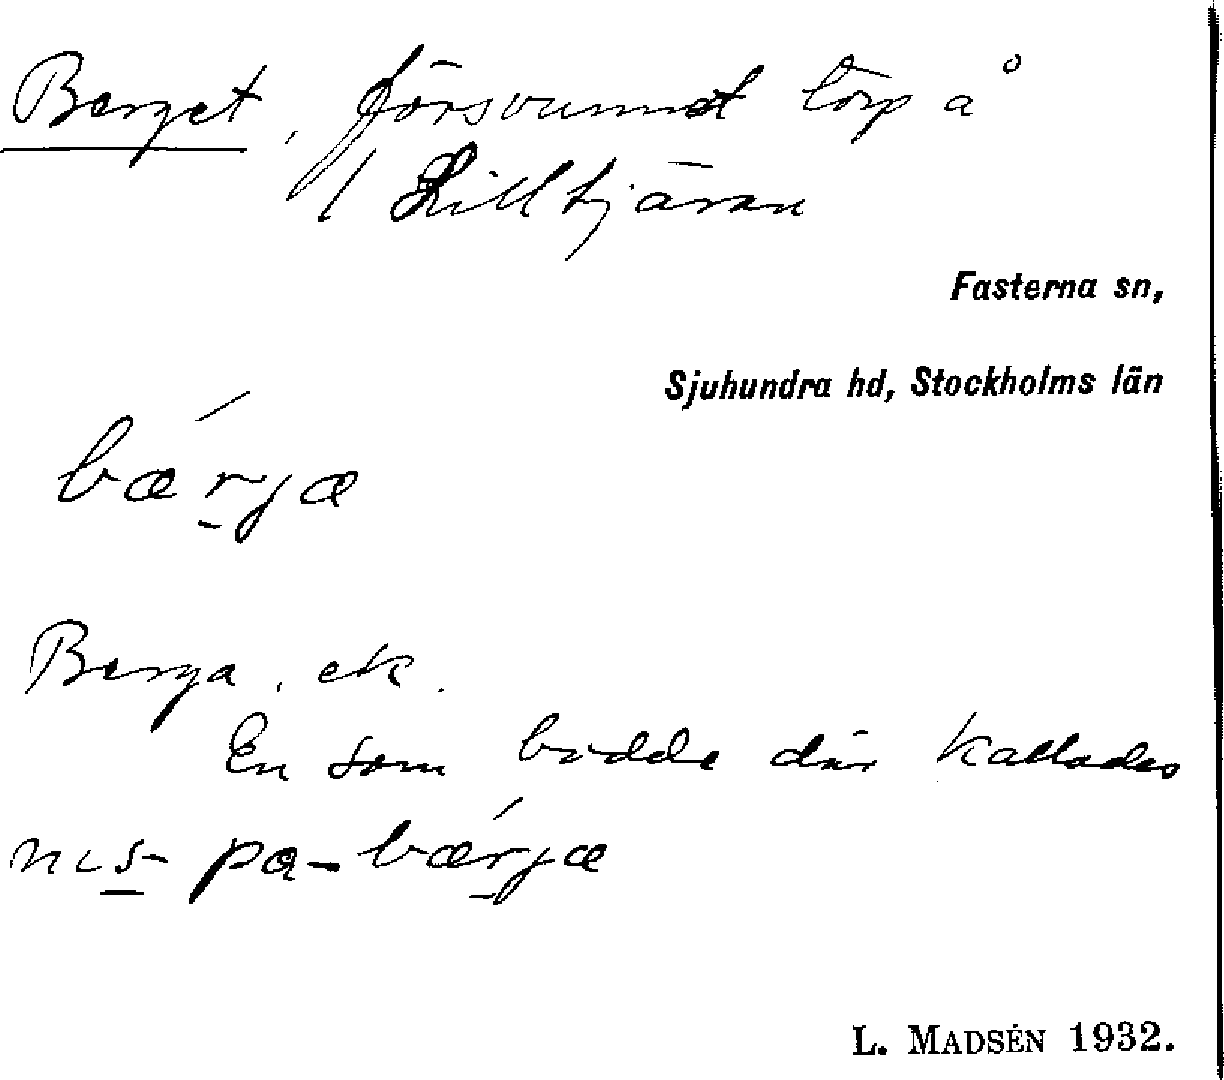 Berget, försvunnet torp å
/ Lilltjäran
Fasterna sn,
Sjuhundra hd, Stockholms län
bærjæ
Berga, ek.
En som bodde där kallades
nɩs- pa- bærjæ
L. MADSÉN 1932.